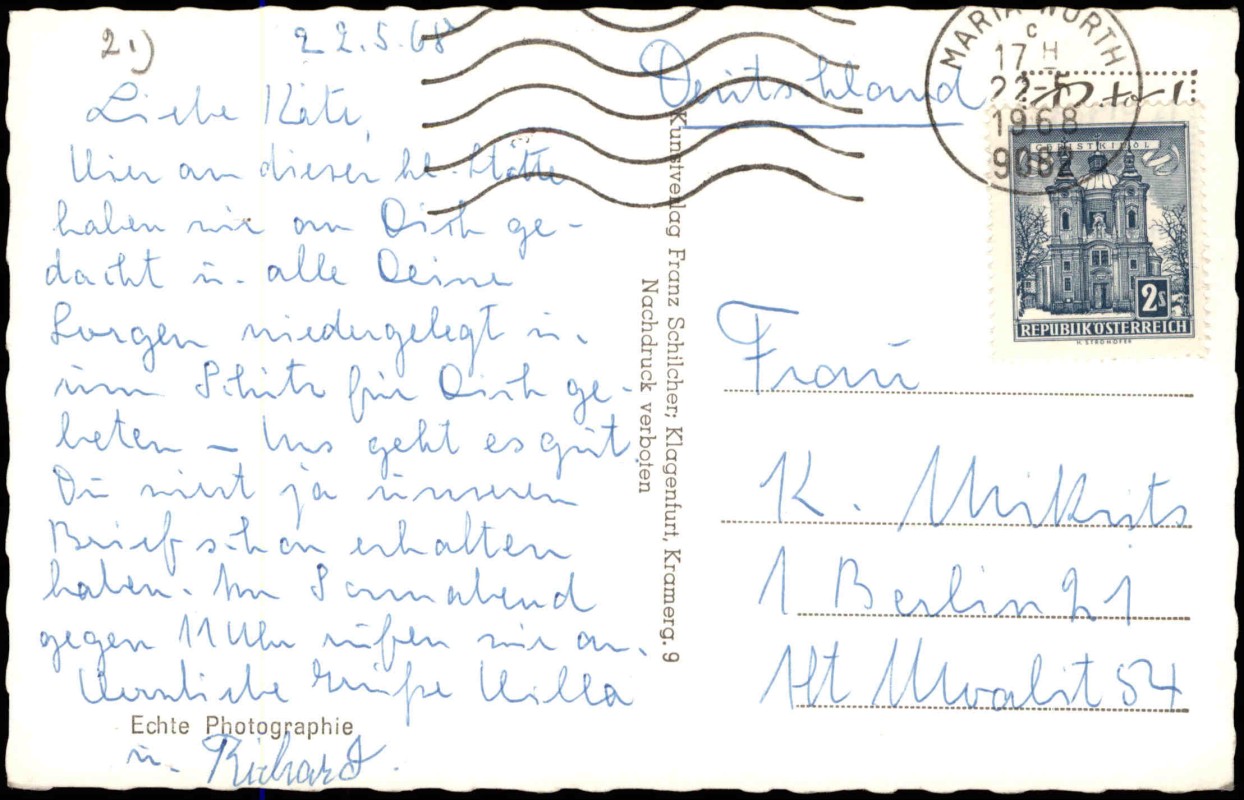 2.)
22.5.68
Liebe Käte,
Hier an dieser hl. Stätte
haben wir an Dich ge-
dacht u. alle Deine
Sorgen niedergelegt u.
um Schutz für Dich ge-
beten – Uns geht es gut.
Du wirst ja unseren
Brief schon erhalten
haben. Am Sonnabend
gegen 11 Uhr rufen wir an.
Herzliche Grüße Hilla
u. Richard.
Echte Photographie
Kunstverlag Franz Schilcher; Klagenfurt, Kramerg. 9
Nachdruck verboten
Deutschland
MARIA WÖRTH
c
17 H
22-5
1968
9082
CHRISTKINDL
2s
REPUBLIK ÖSTERREICH
H. STROHOFER
Frau
K. Mikits
1 Berlin 21
Alt Moabit 54